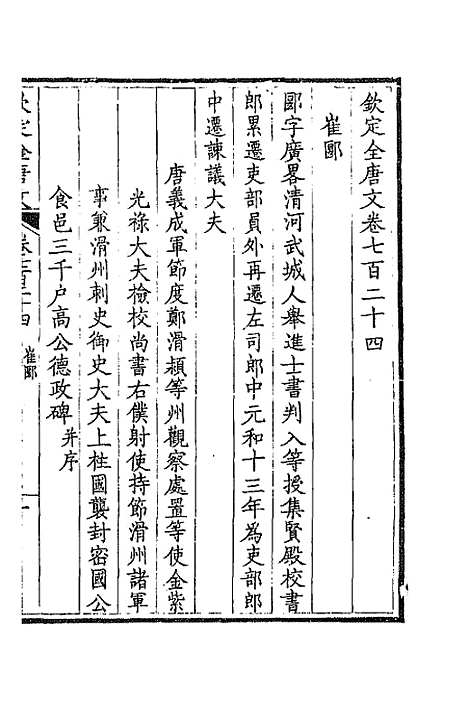 欽定全唐文卷七百二十四
崔郾
郾字廣畧清河武城人舉進士書判入等授集賢殿校書
郎累遷吏部員外再遷左司郎中元和十三年為吏部郎
中遷諫議大夫
唐義成軍節度鄭滑頴等州觀察處置等使金紫
光祿大夫檢校尚書右僕射使持節滑州諸軍
事兼滑州刺史御史大夫上柱國襲封密國公
食邑三千户高公德政碑并序
崔郾